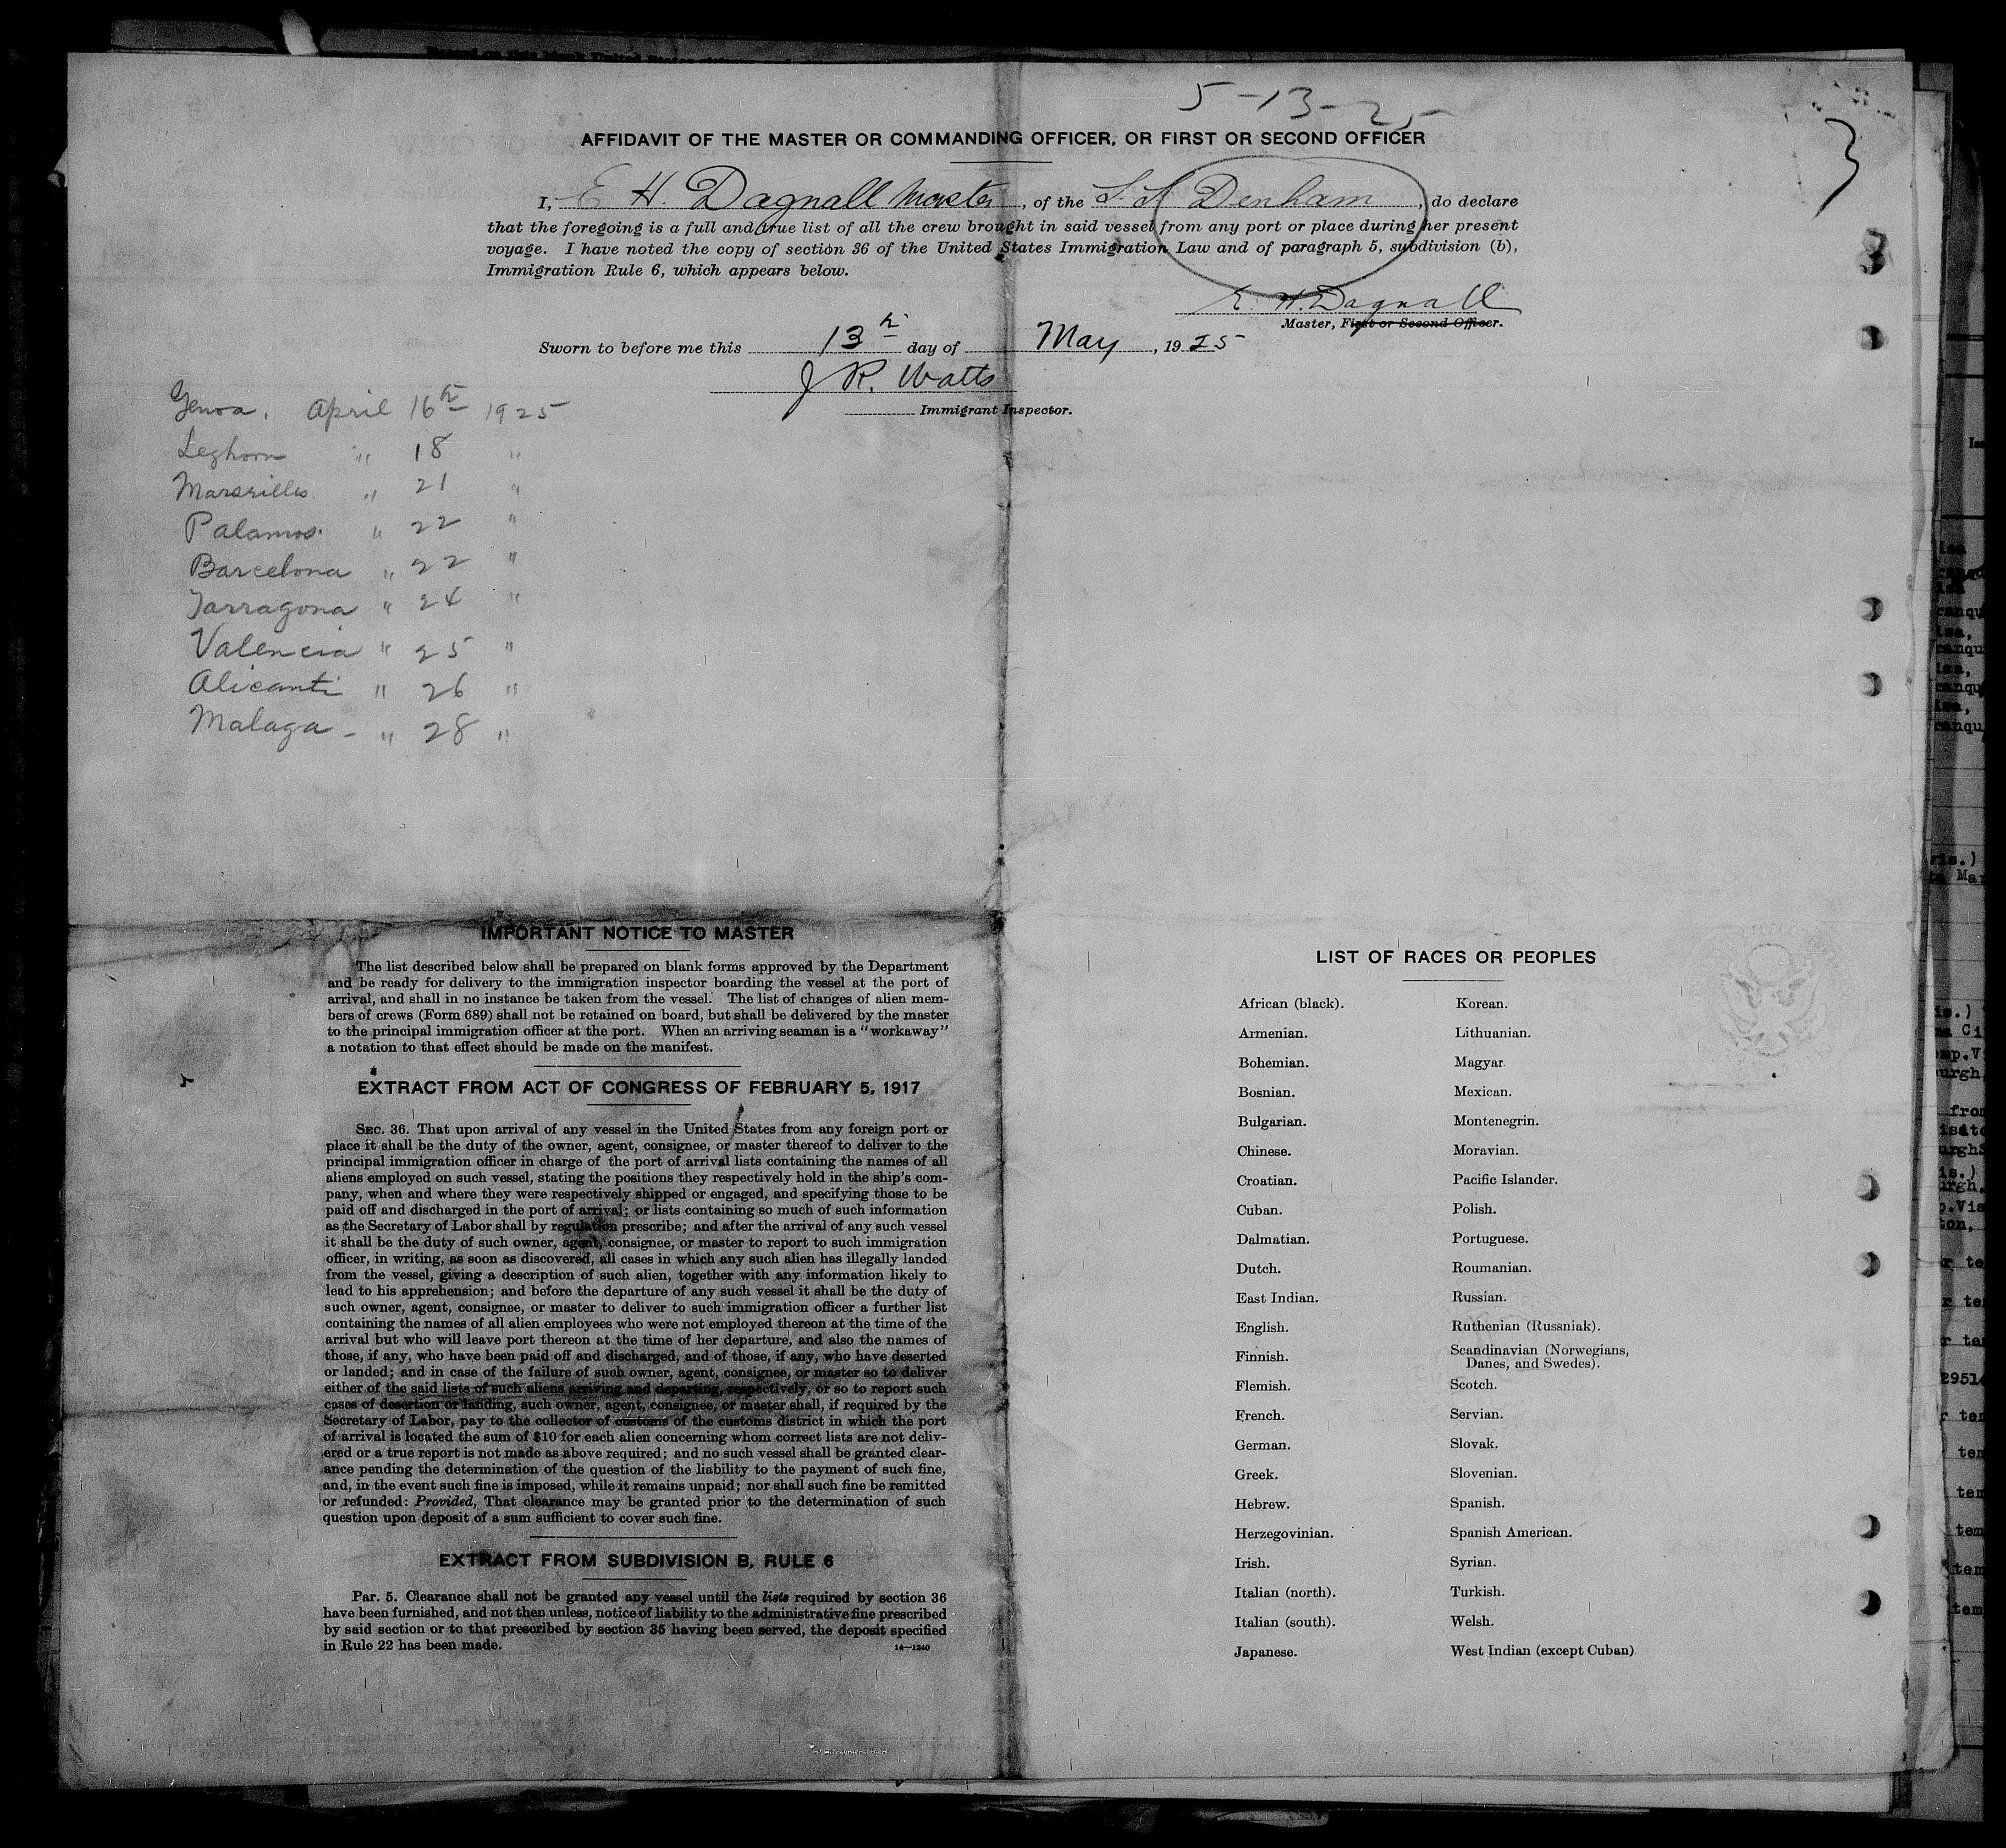 5-13-25
3
AFFIDAVIT OF THE MASTER OR COMMANDING OFFICER, OR FIRST OR SECOND OFFICER
I, E H. Dagnall Master, of the S. S. Denham, do declare
that the foregoing is a full and true list of all the crew brought in said vessel from any port or place during her present
voyage. I have noted the copy of section 36 of the United States Immigration Law and of paragraph 5, subdivision (b),
Immigration Rule 6, which appears below.
E. H. Dagnall
Master, First or Second Officer.
Sworn to before me this 13th day of May, 1925
J R. Watts
Immigrant Inspector.
Genoa. April 16th 1925
Leghorn " 18 "
Marseilles " 21 "
Palamos. " 22 "
Barcelona " 22 "
Tarragona " 24 "
Valencia " 25 "
Alicanti " 26 "
Malaga - " 28 "
IMPORTANT NOTICE TO MASTER
The list described below shall be prepared on blank forms approved by the Department
and be ready for delivery to the immigration inspector boarding the vessel at the port of
arrival, and shall in no instance be taken from the vessel. The list of changes of alien mem-
bers of crews (Form 689) shall not be retained on board, but shall be delivered by the master
to the principal immigration officer at the port. When an arriving seaman is a "workaway"
a notation to that effect should be made on the manifest.
EXTRACT FROM ACT OF CONGRESS OF FEBRUARY 5, 1917
SEC. 36. That upon arrival of any vessel in the United States from any foreign port or
place it shall be the duty of the owner, agent, consignee, or master thereof to deliver to the
principal immigration officer in charge of the port of arrival lists containing the names of all
aliens employed on such vessel, stating the positions they respectively hold in the ship's com-
pany, when and where they were respectively shipped or engaged, and specifying those to be
paid off and discharged in the port of arrival; or lists containing so much of such information
as the Secretary of Labor shall by regulation prescribe; and after the arrival of any such vessel
it shall be the duty of such owner, agent, consignee, or master to report to such immigration
officer, in writing, as soon as discovered, all cases in which any such alien has illegally landed
from the vessel, giving a description of such alien, together with any information likely to
lead to his apprehension; and before the departure of any such vessel it shall be the duty of
such owner, agent, consignee, or master to deliver to such immigration officer a further list
containing the names of all alien employees who were not employed thereon at the time of the
arrival but who will leave port thereon at the time of her departure, and also the names of
those, if any, who have been paid off and discharged, and of those, if any, who have deserted
or landed; and in case of the failure of such owner, agent, consignee, or master so to deliver
either of the said lists of such aliens arriving and departing, respectively, or so to report such
cases of desertion or landing, such owner, agent, consignee, or master shall, if required by the
Secretary of Labor, pay to the collector of customs of the customs district in which the port
of arrival is located the sum of $10 for each alien concerning whom correct lists are not deliv-
ered or a true report is not made as above required; and no such vessel shall be granted clear-
ance pending the determination of the question of the liability to the payment of such fine,
and, in the event such fine is imposed, while it remains unpaid; nor shall such fine be remitted
or refunded: Provided, That clearance may be granted prior to the determination of such
question upon deposit of a sum sufficient to cover such fine.
EXTRACT FROM SUBDIVISION B, RULE 6
Par. 5. Clearance shall not be granted any vessel until the lists required by section 36
have been furnished, and not then unless, notice of liability to the administrative fine prescribed
by said section or to that prescribed by section 35 having been served, the deposit specified
in Rule 22 has been made.
14—1240
LIST OF RACES OR PEOPLES
African (black). Korean.
Armenian. Lithuanian.
Bohemian. Magyar.
Bosnian. Mexican.
Bulgarian. Montenegrin.
Chinese. Moravian.
Croatian. Pacific Islander.
Cuban. Polish.
Dalmatian. Portuguese.
Dutch. Roumanian.
East Indian. Russian.
English. Ruthenian (Russniak).
Finnish. Scandinavian (Norwegians,
Danes, and Swedes).
Flemish. Scotch.
French. Servian.
German. Slovak.
Greek. Slovenian.
Hebrew. Spanish.
Herzegovinian. Spanish American.
Irish. Syrian.
Italian (north). Turkish.
Italian (south). Welsh.
Japanese. West Indian (except Cuban)